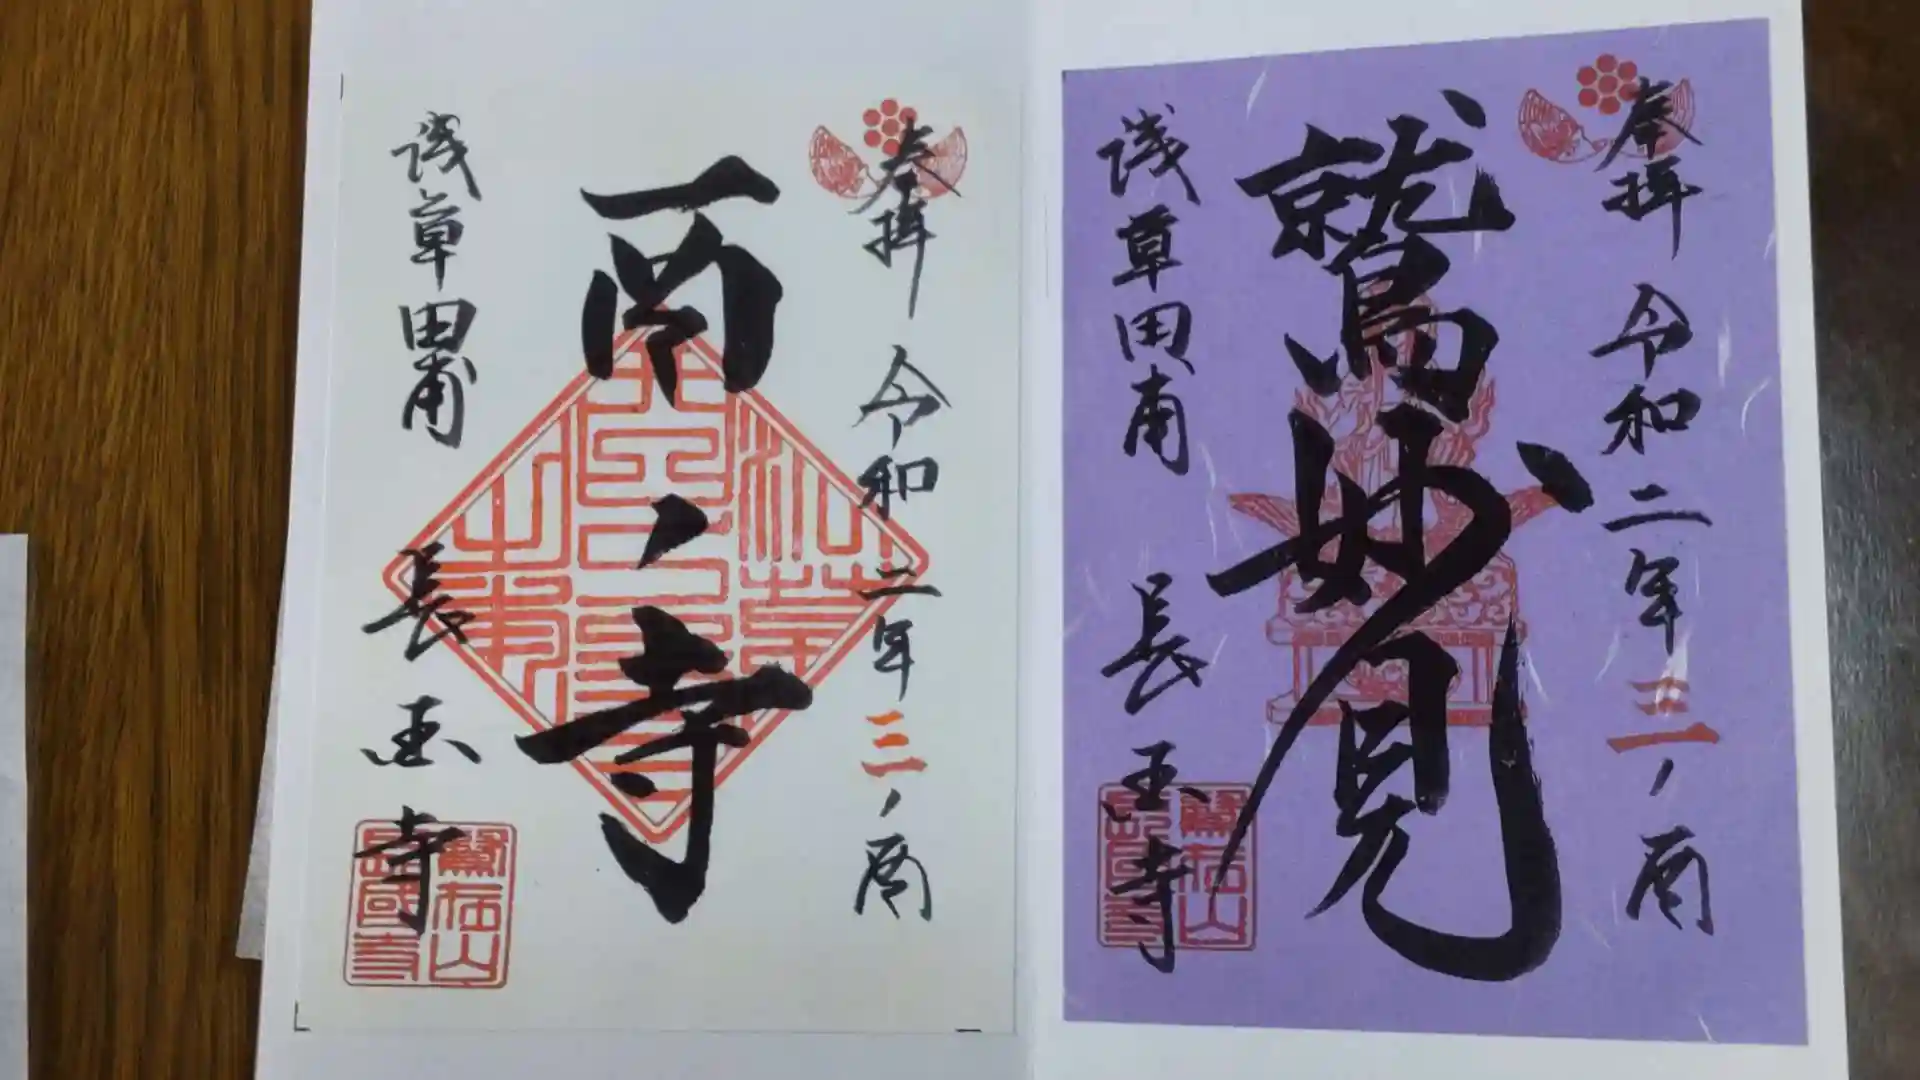 奉拝 令和二年三ノ酉
鷲妙見
浅草田甫 長国寺
鷲在山
長國寺
奉拝 令和二年三ノ酉
酉ノ寺
浅草田甫 長国寺
鷲在山
長國寺